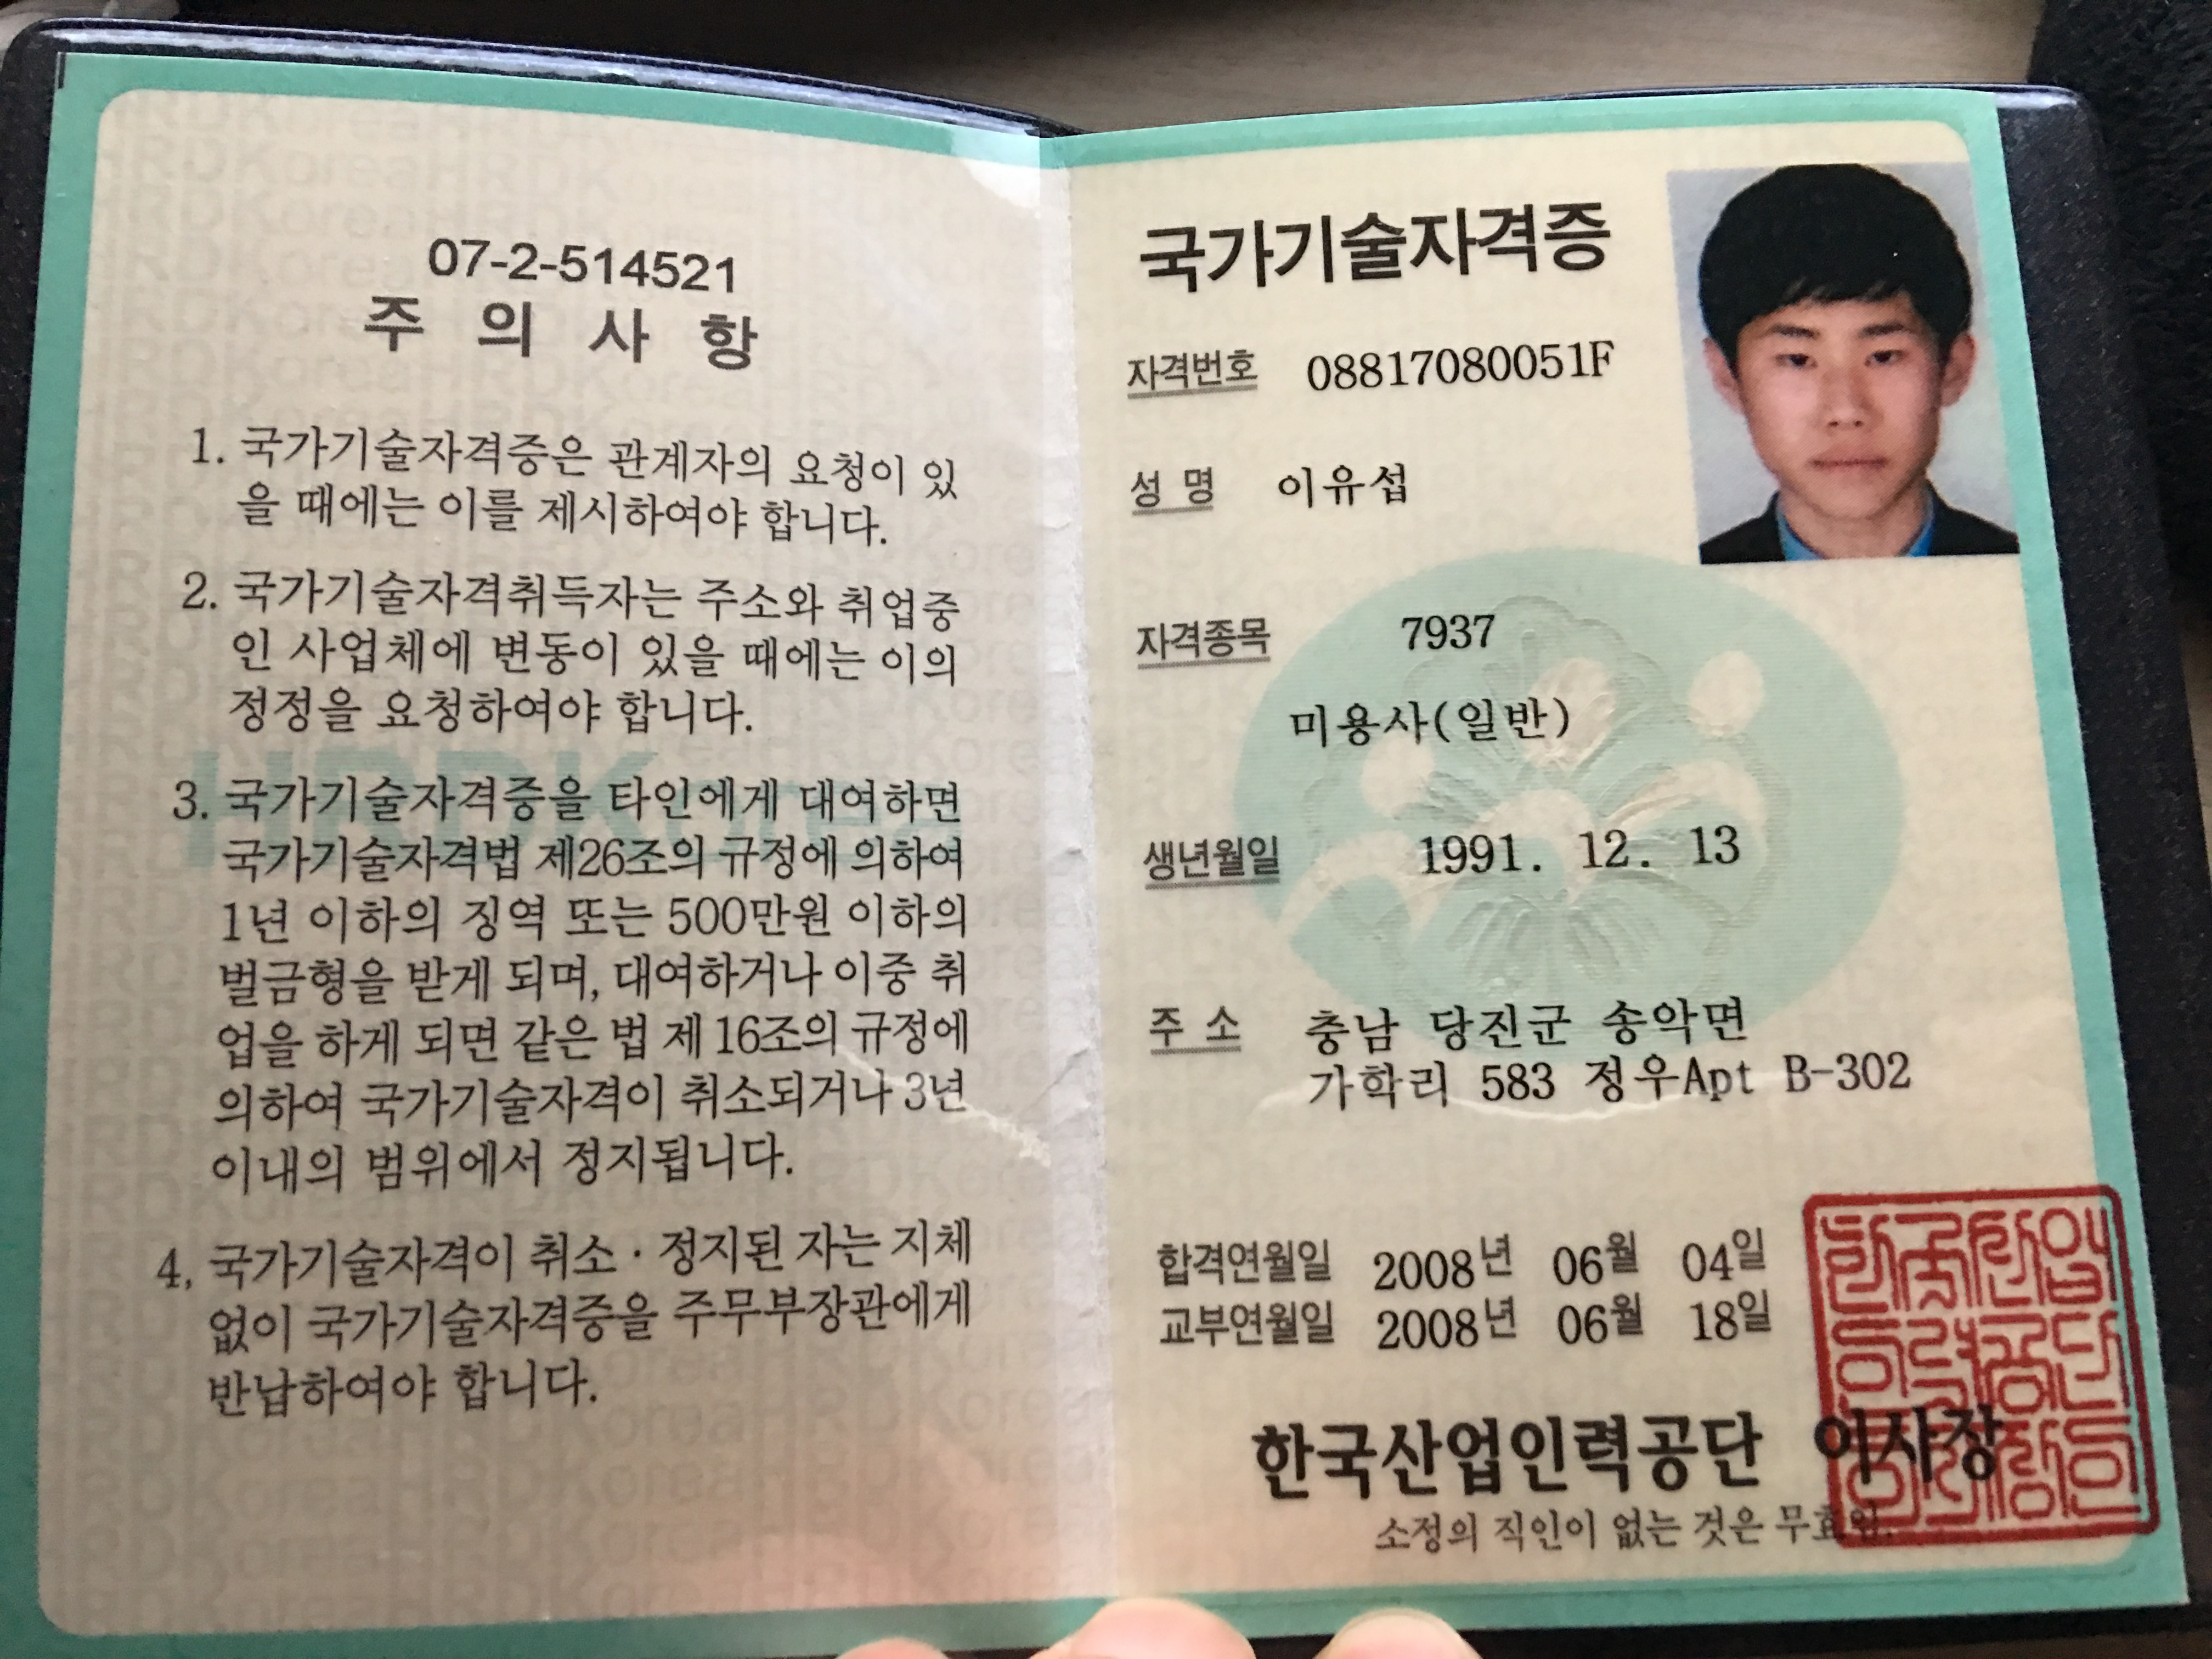 07-2-514521
주 의 사 항
1. 국가기술자격증은 관계자의 요청이 있
을 때에는 이를 제시하여야 합니다.
2. 국가기술자격취득자는 주소와 취업중
인 사업체에 변동이 있을 때에는 이의
정정을 요청하여야 합니다.
3. 국가기술자격증을 타인에게 대여하면
국가기술자격법 제26조의 규정에 의하여
1년 이하의 징역 또는 500만원 이하의
벌금형을 받게 되며, 대여하거나 이중 취
업을 하게 되면 같은 법 제 16조의 규정에
의하여 국가기술자격이 취소되거나 3년
이내의 범위에서 정지됩니다.
4, 국가기술자격이 취소 · 정지된 자는 지체
없이 국가기술자격증을 주무부장관에게
반납하여야 합니다.
HRDKorea
국가기술자격증
자격번호 08817080051F
성 명 이유섭
자격종목 7937
미용사(일반)
생년월일 1991. 12. 13
주 소 충남 당진군 송악면
가학리 583 정우Apt B-302
합격연월일 2008년 06월 04일
교부연월일 2008년 06월 18일
한국산업인력공단 이사장
소정의 직인이 없는 것은 무효임.